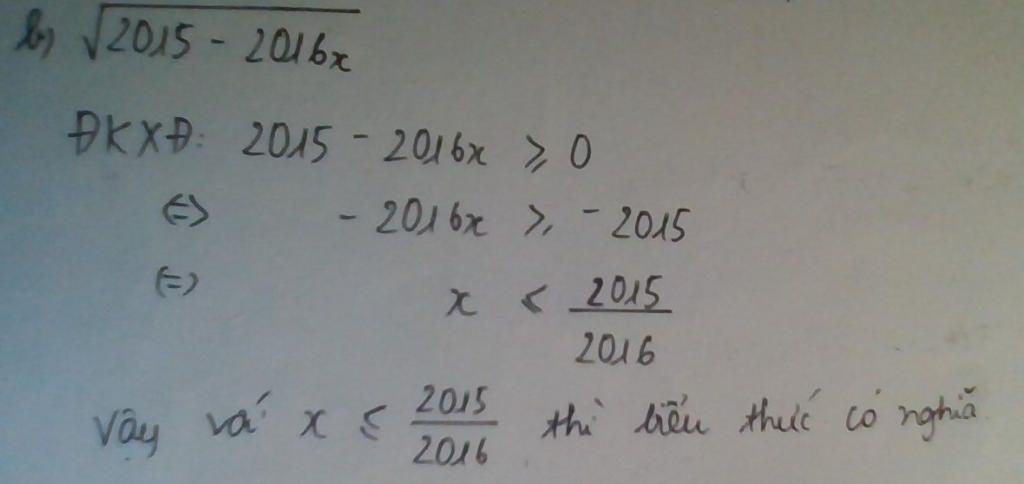 b) √2015 - 2016x
ĐKXĐ: 2015 - 2016x ≥ 0
<=> - 2016x ≥ - 2015
<=> x < 2015/2016
Vậy với x ≤ 2015/2016 thì biểu thức có nghĩa